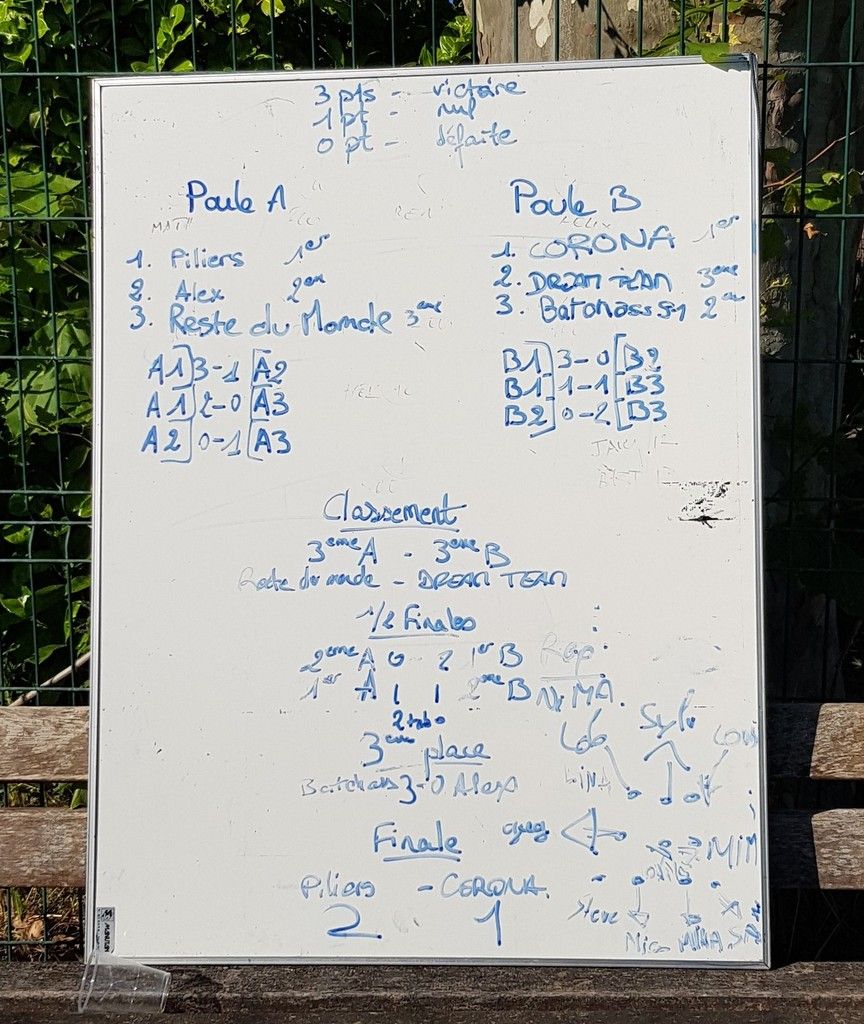 3 pts - victoire
1 pt - nul
0 pt - défaite
Poule A
MATT
1. Piliers 1er
2. Alex 2em
3. Reste du Monde 3eme
A1 3-1 A2
A1 2-0 A3
A2 0-1 A3
Poule B
1. CORONA 1er
2. DREAM TEAM 3eme
3. 2em
B1 3-0 B2
B1 1-1 B3
B2 0-2 B3
Classement
3eme A - 3eme B
Reste du monde - DREAM TEAM
1/2 Finales
2eme A 0 2 1er B
1er A 1 1 2eme B
3em place
3-0 Alex
Finale
Piliers - CORONA
2 1
NIMA
Sylv
LINA
MIM
Steve
Nico